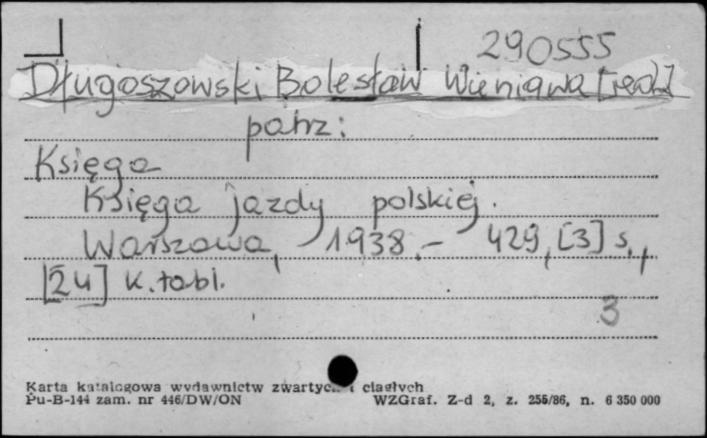 290555
Długoszowski Bolesław Wieniawa [red.]
patrz:
Księga
Księga jazdy polskiej.
Warszawa, 1938.- 429, [3] s.,
[24] k.tabl.
3
Karta katalogowa wydawnictw zwartych i ciągłych
Pu-B-144 zam. nr 446/DW/ON WZGraf. Z-d 2, z. 255/86, n. 6 350 000